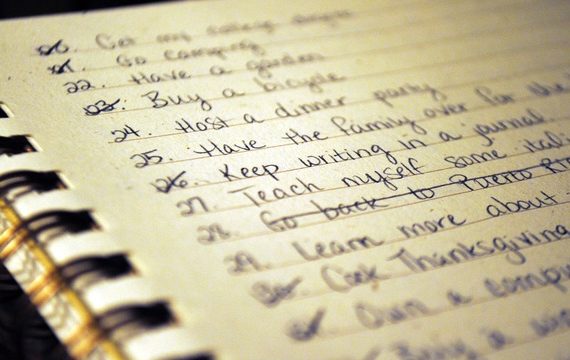 20. Get my college degree
21. Go camping
22. Have a garden
23. Buy a bicycle
24. Host a dinner party
25. Have the family over for the
26. Keep writing in a journal
27. Teach myself some itali
28. Go back to Puerto Ri
29. Learn more about
Cook Thanksgiving
Own a compu
Buy a